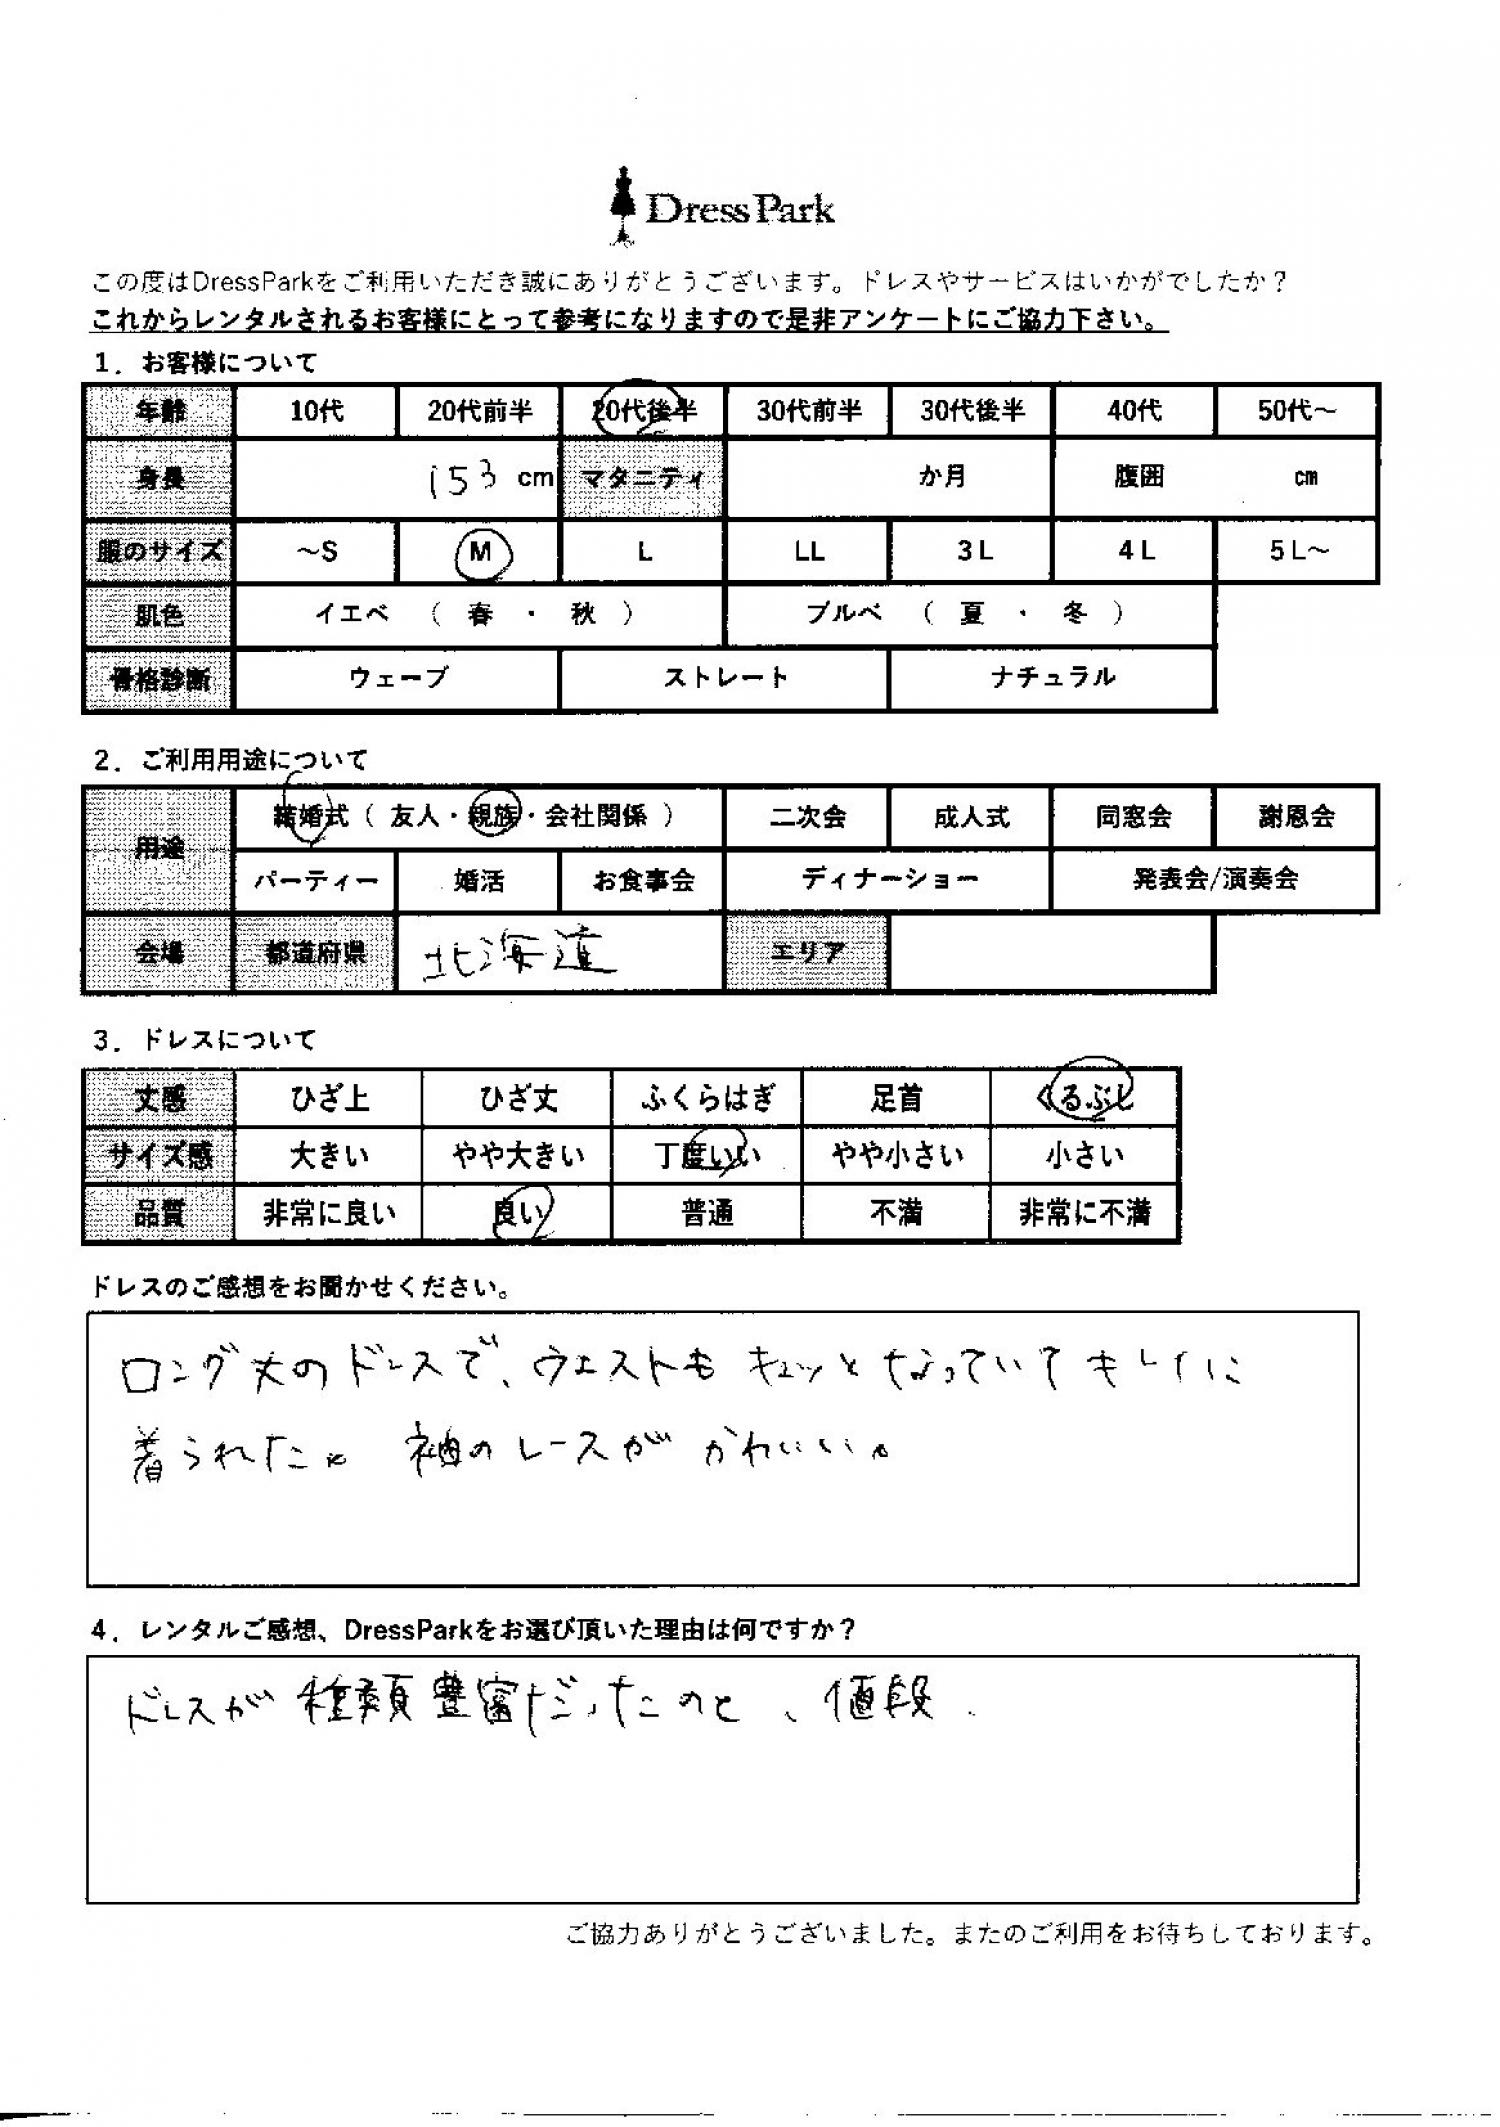 Dress Park
この度はDressParkをご利用いただき誠にありがとうございます。ドレスやサービスはいかがでしたか？
これからレンタルされるお客様にとって参考になりますので是非アンケートにご協力下さい。
1．お客様について
年齢 10代 20代前半 20代後半 30代前半 30代後半 40代 50代～
身長 153 cm マタニティ か月 腹囲 cm
服のサイズ ～S M L LL 3L 4L 5L～
肌色 イエベ （ 春 ・ 秋 ） ブルベ （ 夏 ・ 冬 ）
骨格診断 ウェーブ ストレート ナチュラル
2．ご利用用途について
用途 結婚式（ 友人・親族・会社関係 ） 二次会 成人式 同窓会 謝恩会
パーティー 婚活 お食事会 ディナーショー 発表会/演奏会
会場 都道府県 北海道 エリア
3．ドレスについて
丈感 ひざ上 ひざ丈 ふくらはぎ 足首 くるぶし
サイズ感 大きい やや大きい 丁度いい やや小さい 小さい
品質 非常に良い 良い 普通 不満 非常に不満
ドレスのご感想をお聞かせください。
ロング丈のドレスで、ウエストもキュッとなっていてキレイに
着られた。袖のレースがかわいい。
4．レンタルご感想、DressParkをお選び頂いた理由は何ですか？
ドレスが種類豊富だったのと、値段.
ご協力ありがとうございました。またのご利用をお待ちしております。